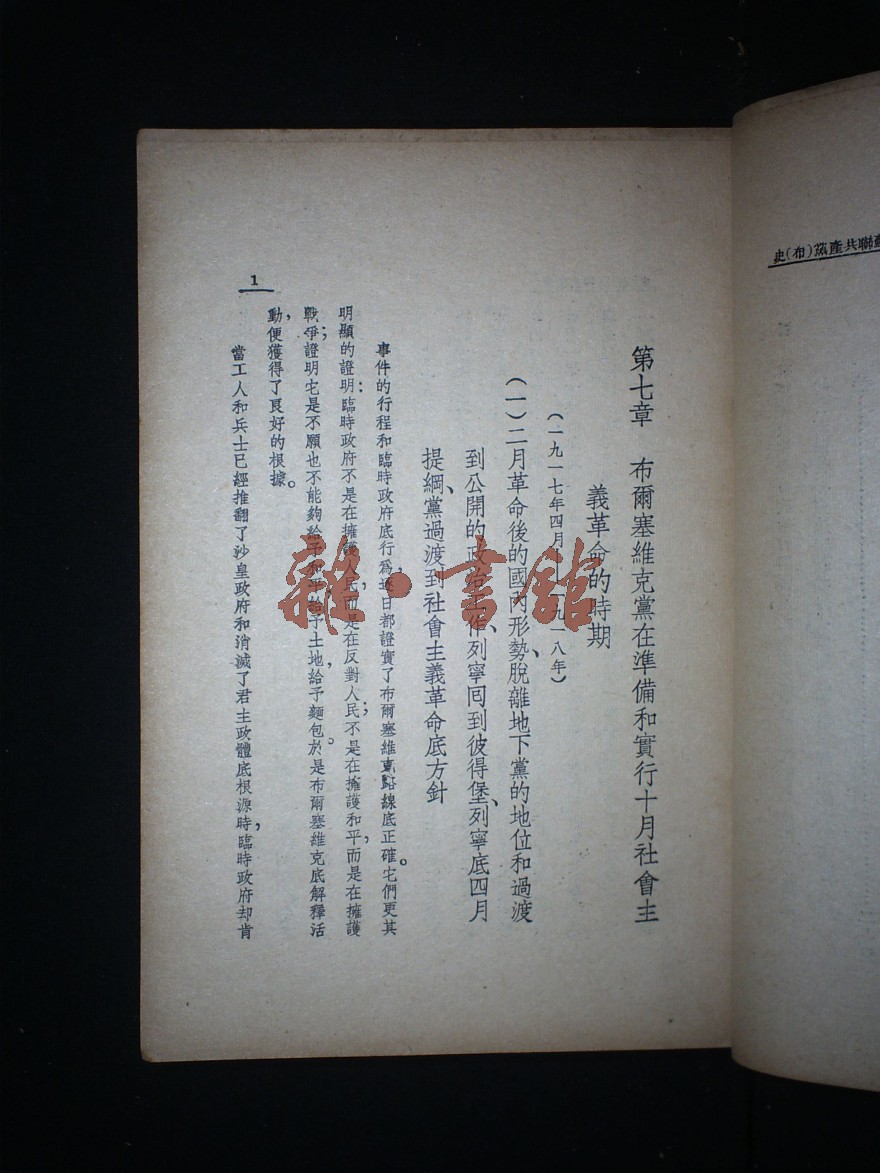 聯共產黨(布)史
第七章　布爾塞維克黨在準備和實行十月社會主
義革命的時期
(一九一七年四月——一九一八年)
(一)二月革命後的國內形勢、脫離地下黨的地位和過渡
到公開的政治工作、列寧回到彼得堡、列寧底四月
提綱、黨過渡到社會主義革命底方針
事件的行程和臨時政府底行爲,逐日都證實了布爾塞維克路線底正確。它們更其
明顯的證明:臨時政府不是在擁護人民,而是在反對人民;不是在擁護和平,而是在擁護
戰爭;證明它是不願也不能夠給予和平,給予土地,給予麵包。於是布爾塞維克底解釋活
動,便獲得了良好的根據。
當工人和兵士已經推翻了沙皇政府和消滅了君主政體底根源時,臨時政府却肯
1
雜·書館